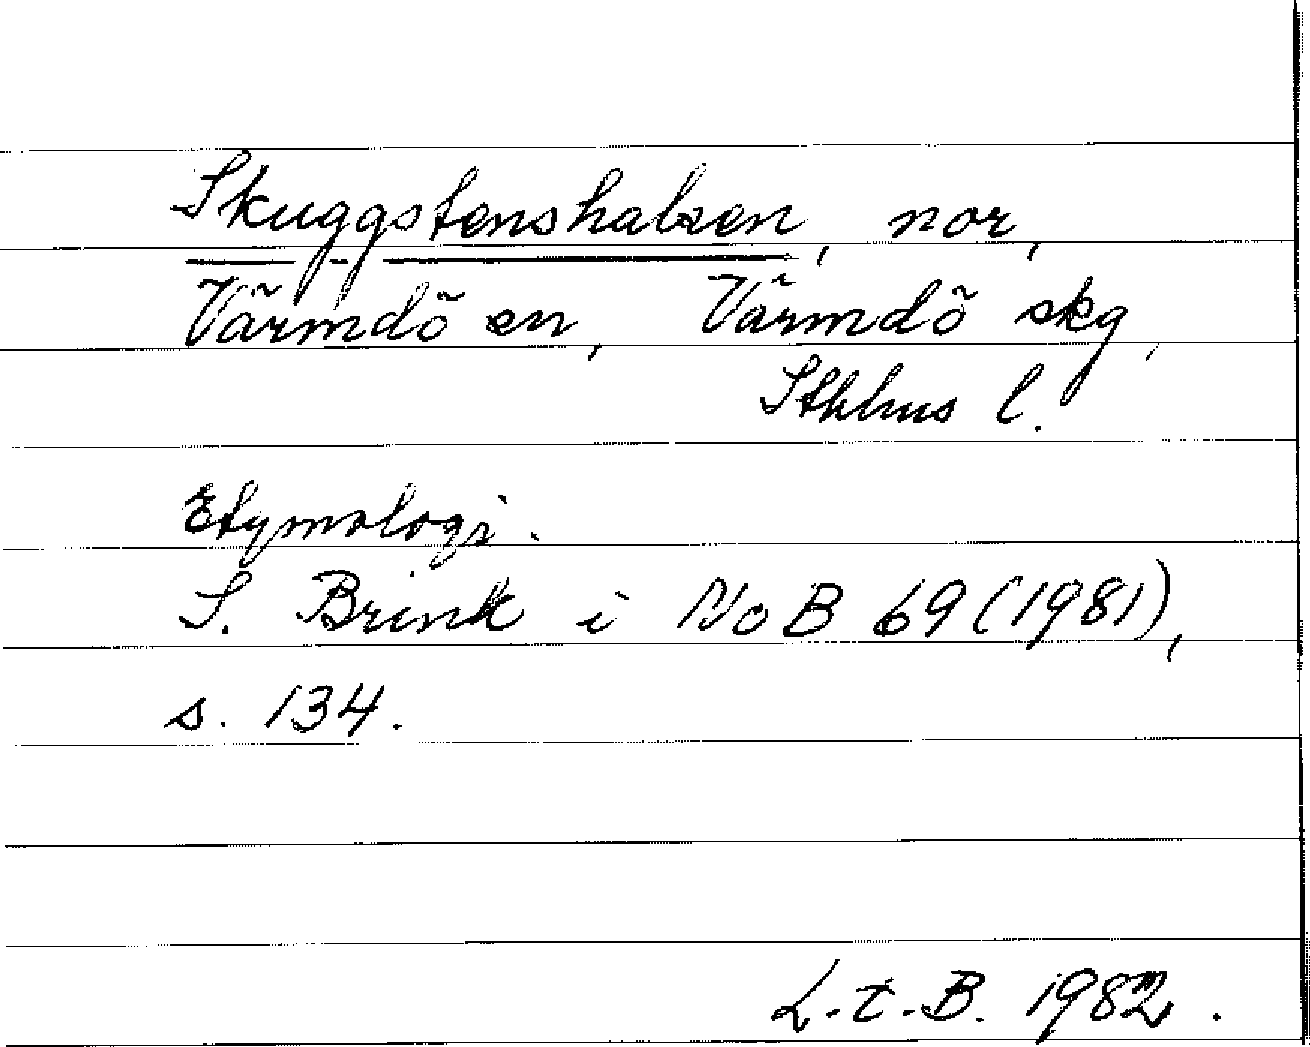 Skuggstenshalsen, nor,
Värmdö sn, Värmdö skg,
Sthlms l.
Etymologi.
S. Brink i NoB 69 (1981),
s. 134.
L.t.B. 1982.